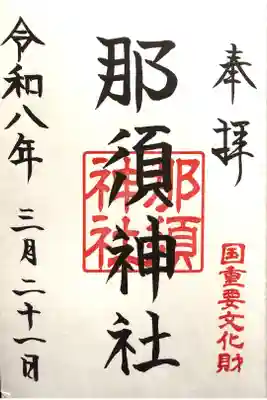 奉拝
国重要文化財
那須神社
那須神社
令和八年 三月二十一日